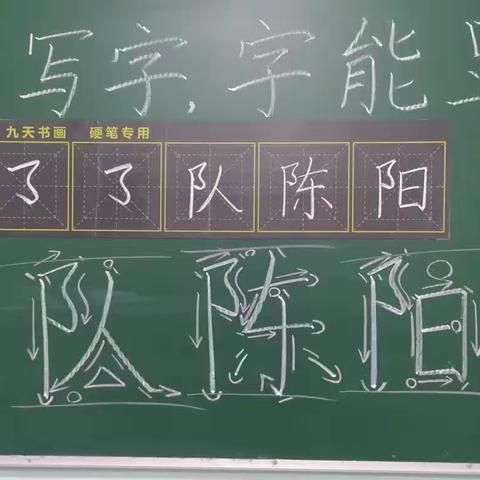 写字,字能
九天书画 硬笔专用
了 了 队 陈 阳
队 陈 阳